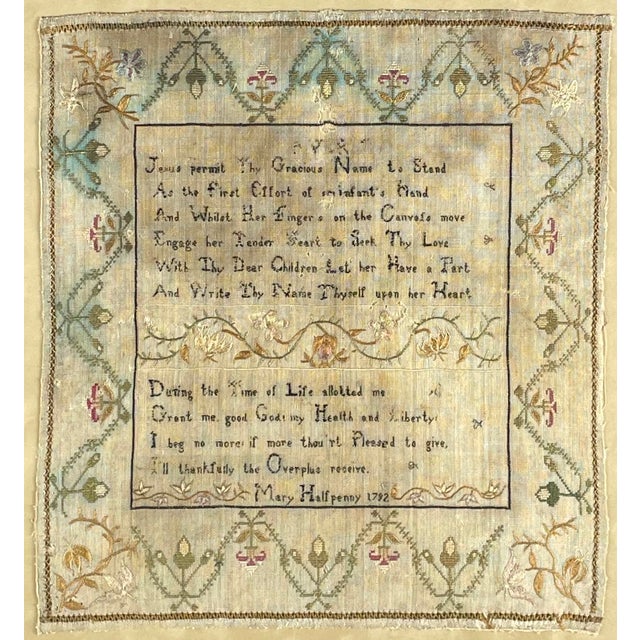 Jesus permit Thy Gracious Name to Stand
As the First Effort of an infant's Hand
And Whilst Her Fingers on the Canvass move
Engage her Tender Heart to Seek Thy Love
With Thy Dear Children Let her Have a Part
And Write Thy Name Thyself upon her Heart
During the Time of Life allotted me
Grant me, good God! my Health and Liberty:
I beg no more; if more thou'rt Pleased to give,
I'll thankfully the Overplus receive.
Mary Halfpenny 1792